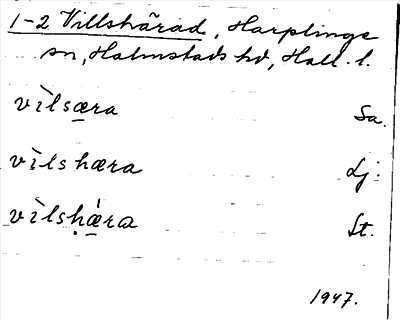 1-2 Villshärad, Harplinge
sn, Halmstads hd, Hall. l.
vìlsæ̠ra Sa.
vìlshæra Lj.
vìlsḥǽ̠ra St.
1947.